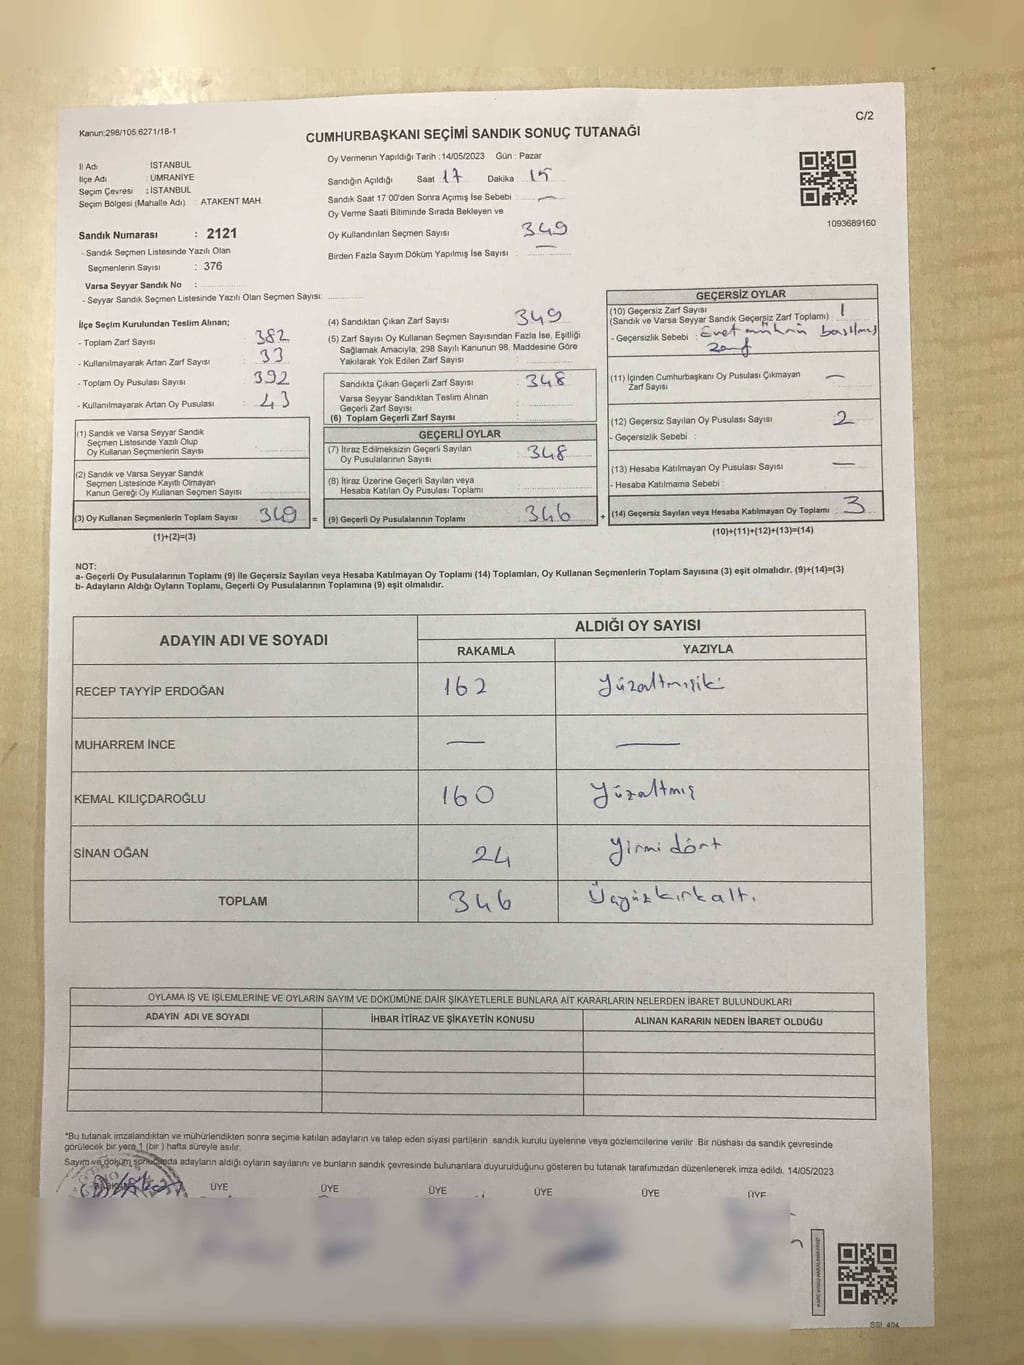 C/2
Kanun:298/105.6271/16-1
CUMHURBAŞKANI SEÇİMİ SANDIK SONUÇ TUTANAĞI
İl Adı : İSTANBUL
İlçe Adı : ÜMRANİYE
Seçim Çevresi : İSTANBUL
Seçim Bölgesi (Mahalle Adı) : ATAKENT MAH.
Oy Vermenin Yapıldığı Tarih :14/05/2023 Gün : Pazar
Sandığın Açıldığı Saat 17 Dakika : 15
Sandık Saat 17:00'den Sonra Açımış İse Sebebi : —
Oy Verme Saati Bitiminde Sırada Bekleyen ve
Oy Kullandırılan Seçmen Sayısı 349
Birden Fazla Sayım Döküm Yapılmış İse Sayısı : —
1093689160
Sandık Numarası : 2121
- Sandık Seçmen Listesinde Yazılı Olan
Seçmenlerin Sayısı : 376
Varsa Seyyar Sandık No :
- Seyyar Sandık Seçmen Listesinde Yazılı Olan Seçmen Sayısı:
İlçe Seçim Kurulundan Teslim Alınan;
- Toplam Zarf Sayısı : 382
- Kullanılmayarak Artan Zarf Sayısı : 33
- Toplam Oy Pusulası Sayısı : 392
- Kullanılmayarak Artan Oy Pusulası : 43
(1) Sandık ve Varsa Seyyar Sandık
Seçmen Listesinde Yazılı Olup
Oy Kullanan Seçmenlerin Sayısı :
(2) Sandık ve Varsa Seyyar Sandık
Seçmen Listesinde Kayıtlı Olmayan
Kanun Gereği Oy Kullanan Seçmen Sayısı :
(3) Oy Kullanan Seçmenlerin Toplam Sayısı : 349 =
(1)+(2)=(3)
(4) Sandıktan Çıkan Zarf Sayısı : 349
(5) Zarf Sayısı Oy Kullanan Seçmen Sayısından Fazla İse, Eşitliği
Sağlamak Amacıyla, 298 Sayılı Kanunun 98. Maddesine Göre
Yakılarak Yok Edilen Zarf Sayısı :
Sandıkta Çıkan Geçerli Zarf Sayısı : 348
Varsa Seyyar Sandıktan Teslim Alınan
Geçerli Zarf Sayısı :
(6) Toplam Geçerli Zarf Sayısı :
GEÇERLİ OYLAR
(7) İtiraz Edilmeksizin Geçerli Sayılan
Oy Pusulalarının Sayısı : 348
(8) İtiraz Üzerine Geçerli Sayılan veya
Hesaba Katılan Oy Pusulası Toplamı :
(9) Geçerli Oy Pusulalarının Toplamı : 346 +
GEÇERSİZ OYLAR
(10) Geçersiz Zarf Sayısı
(Sandık ve Varsa Seyyar Sandık Geçersiz Zarf Toplamı) : 1
- Geçersizlik Sebebi : Evet mührün basılmış
zarf
(11) İçinden Cumhurbaşkanı Oy Pusulası Çıkmayan
Zarf Sayısı : —
(12) Geçersiz Sayılan Oy Pusulası Sayısı : 2
- Geçersizlik Sebebi :
(13) Hesaba Katılmayan Oy Pusulası Sayısı : —
- Hesaba Katılmama Sebebi :
(14) Geçersiz Sayılan veya Hesaba Katılmayan Oy Toplamı : 3
(10)+(11)+(12)+(13)=(14)
NOT:
a- Geçerli Oy Pusulalarının Toplamı (9) ile Geçersiz Sayılan veya Hesaba Katılmayan Oy Toplamı (14) Toplamları, Oy Kullanan Seçmenlerin Toplam Sayısına (3) eşit olmalıdır. (9)+(14)=(3)
b- Adayların Aldığı Oyların Toplamı, Geçerli Oy Pusulalarının Toplamına (9) eşit olmalıdır.
ADAYIN ADI VE SOYADI
ALDIĞI OY SAYISI
RAKAMLA YAZIYLA
RECEP TAYYİP ERDOĞAN 162 Yüzaltmışiki
MUHARREM İNCE — —
KEMAL KILIÇDAROĞLU 160 Yüzaltmış
SİNAN OĞAN 24 Yirmi dört
TOPLAM 346 Üçyüzkırkaltı
OYLAMA İŞ VE İŞLEMLERİNE VE OYLARIN SAYIM VE DÖKÜMÜNE DAİR ŞİKAYETLERLE BUNLARA AİT KARARLARIN NELERDEN İBARET BULUNDUKLARI
ADAYIN ADI VE SOYADI İHBAR İTİRAZ VE ŞİKAYETİN KONUSU ALINAN KARARIN NEDEN İBARET OLDUĞU
*Bu tutanak imzalandıktan ve mühürlendikten sonra seçime katılan adayların ve talep eden siyasi partilerin sandık kurulu üyelerine veya gözlemcilerine verilir. Bir nüshası da sandık çevresinde
görülecek bir yere 1 (bir ) hafta süreyle asılır.
Sayım ve döküm sonucunda adayların aldığı oyların sayılarını ve bunların sandık çevresinde bulunanlara duyurulduğunu gösteren bu tutanak tarafımızdan düzenlenerek imza edildi. 14/05/2023
BAŞKAN ÜYE ÜYE ÜYE ÜYE ÜYE ÜYE
SSI_404